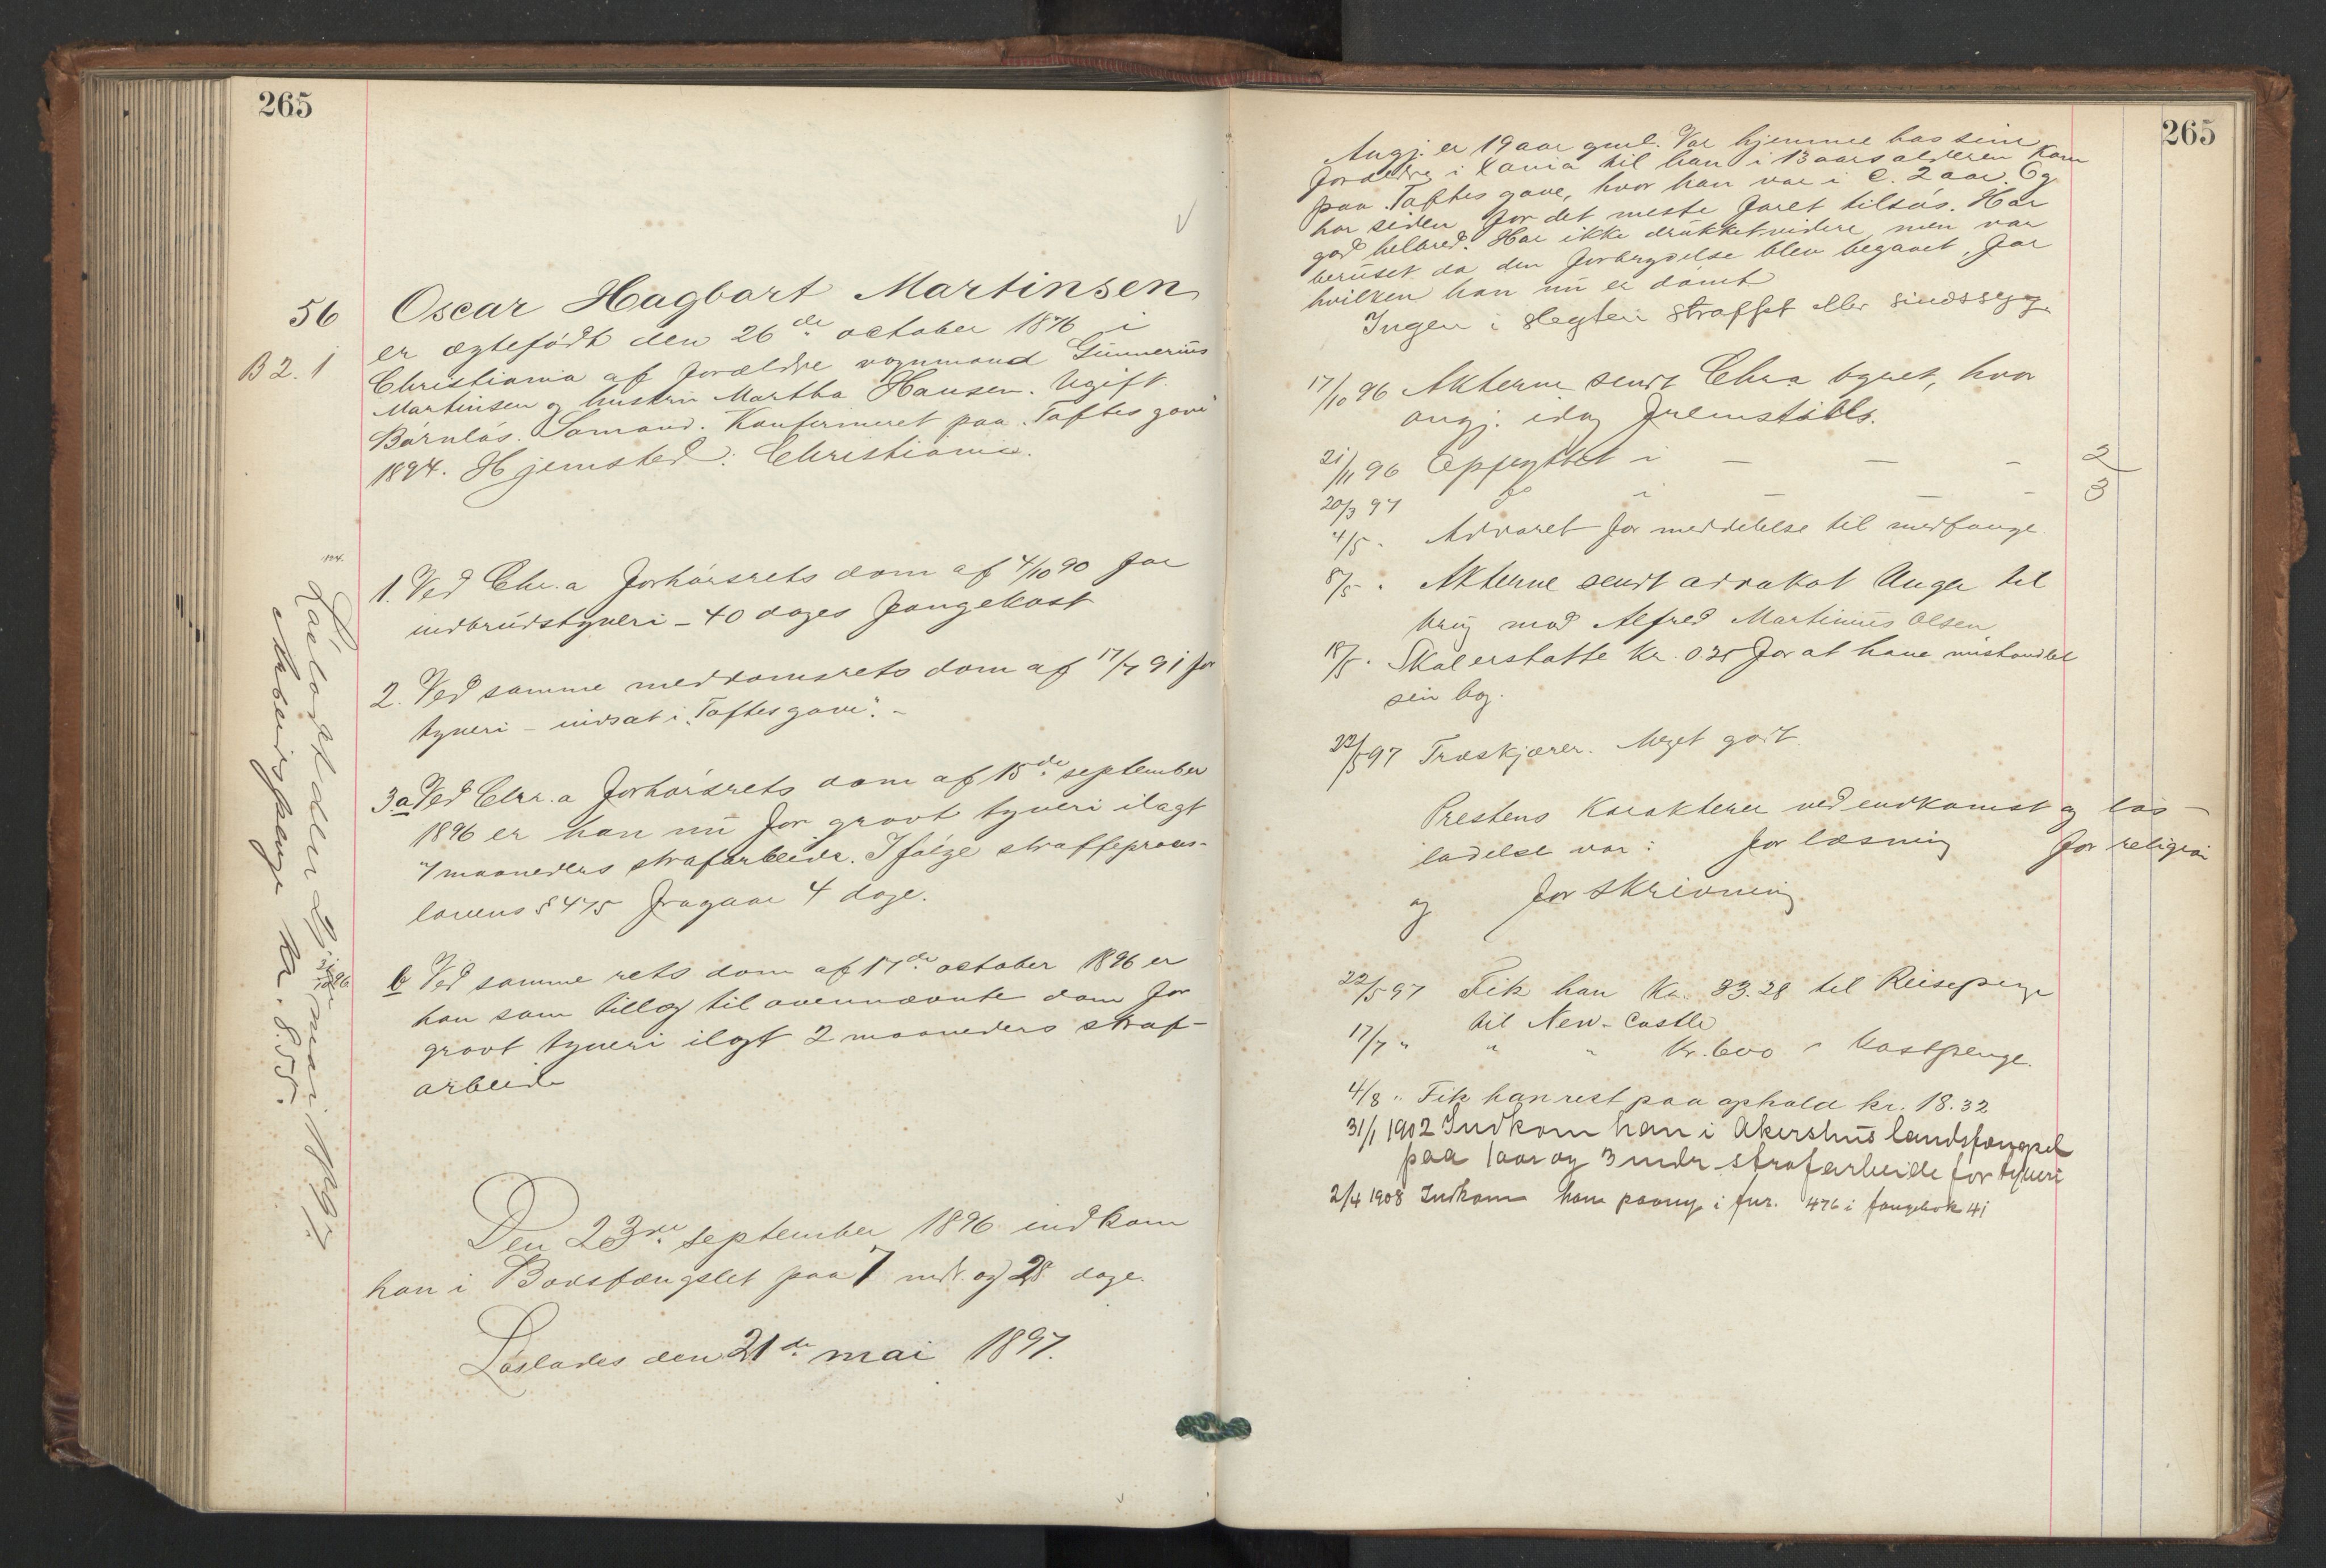 265
56
B 2. 1
Oscar Hagbart Martinsen
er ægtefödt den 26de october 1876 i
Christiania af forældre vognmand Gunnerius
Martinsen og hustru Martha Hansen. Ugift.
Børnløs. Sømand. Konfirmeret paa Toftes gave
1894. Hjemsted: Christiania.
1. Ved Chr.a forhörsrets dom af 4/10 90 for
indbrudstyveri - 40 dages fangekost
2. Ved samme meddomsrets dom af 17/7 91 for
tyveri - indsat i "Toftes gave". -
3.a Ved Chr.a forhörsrets dom af 15de september
1896 er han nu for grovt tyveri ilagt
7 maaneders strafarbeide. Ifölge straffeproces-
lovens § 475 fragaar 4 dage.
b Ved samme rets dom af 17de october 1896 er
han som tillæg til ovennævnte dom for
grovt tyveri ilagt 2 maaneders straf-
arbeide
Den 23de september 1896 indkom
han i Bodsfængslet paa 7 mdr. og 28 dage.
Löslades den 21de mai 1897.
Löslodes den mai 1897
Arbeidspenge kr. 8.55.
265
Angj. er 19 aar gml. Var hjemme hos sine
forældre i Xania til han i 13 aars alderen kom
paa Toftes gave, hvor han var i c. 2 aar. Og
har siden for det meste faret tilsös. Har
god helbred. Har ikke drukket videre, men var
beruset da den forbrydelse blev begaaet, for
hvilken han nu er dömt
Ingen i slegten straffet eller sindssyg.
17/10 96 Akterne sendt Chr.a byret, hvor
angj. idag fremstilles.
21/11 96 Opflyttet i — — - 2
20/3 97 do " — — - 3
4/5 - Advaret for meddelelse til medfange
8/5 - Akterne sendt advokat Unger til
brug mod Alfred Martinius Olsen
18/5 - Skal erstatte kr. 0.25 for at have mishandlet
sin bog.
22/5 97 Træskjærer. Meget godt
Prestens karakterer ved indkomst og lös-
ladelse var: for læsning for religion
og for skrivning
22/5 97 Fik han kr. 33.28 til Reisepenge
til New-Castle
17/7 " " " kr. 6oo " kostpenge.
4/8 " Fik han rest paa ophold kr. 18.32
31/1 1902 Indkom han i Akershus landsfængsel
paa 1 aar og 3 mdr strafarbeide for tyveri
2/4 1908 Indkom han paany i fnr. 476 i fangebok 41